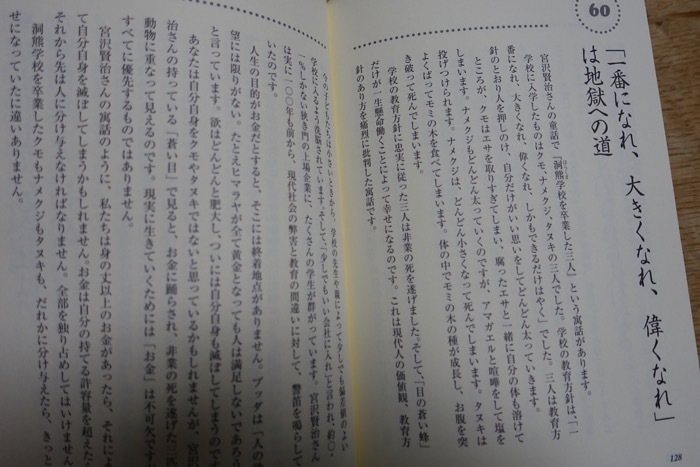 60
「一番になれ、大きくなれ、偉くなれ」
は地獄への道
宮沢賢治さんの童話で『洞熊学校を卒業した三人』という寓話があります。
学校に入学したものはクモ、ナメクジ、タヌキの三人でした。学校の教育方針は、「一
番になれ、大きくなれ、偉くなれ、しかもできるだけはやく」でした。三人は教育方
針のとおり人を押しのけ、自分だけがいい思いをしてどんどん太っていきます。
ところが、クモはエサを取りすぎてしまい、腐ったエサと一緒に自分の体も溶けて
しまいます。ナメクジもどんどん太っていくのですが、アマガエルと喧嘩をして塩を
投げつけられます。ナメクジは、どんどん小さくなって死んでしまいます。タヌキは
よくばってモミの木を食べてしまいます。体の中でモミの木の種が成長し、お腹を突
き破って死んでしまいます。
学校の教育方針に忠実に従った三人は非業の死を遂げました。そして、「目の蒼い蜂」
だけが一生懸命働くことによって幸せになるのです。これは現代人の価値観、教育方
針のあり方を痛烈に批判した寓話です。
128
今の子どもたちは小さいときから、学校の先生や親によって少しでも偏差値のよい
学校に入るよう洗脳されています。そして、「少しでもいい会社に入れ」と言われ、約〇・
一％しかない狭き門の上場企業に、たくさんの学生が群がっています。宮沢賢治さん
は実に一〇〇年も前から、現代社会の弊害と教育の間違いに対して、警笛を鳴らして
いたのです。
人生の目的がお金だとすると、そこには終着地点がありません。ブッダは「人の欲
望には限りがない。たとえヒマラヤが全て黄金となっても人は満足しないであろ
と言っています。欲はどんどんと肥大し、ついには自分自身も滅ぼしてしまうのです
あなたは自分自身をクモやタヌキではないと思っているかもしれませんが、宮沢
治さんの持っている「蒼い目」で見ると、お金に踊らされ、非業の死を遂げた三
動物に重なって見えるのです。現実に生きていくためには「お金」は不可欠です
すべてに優先するものではありません。
宮沢賢治さんの寓話のように、私たちは身の丈以上のお金があったら、それによ
て自分自身を滅ぼしてしまうかもしれません。お金は自分の持てる許容量を超えた
それから先は人に分け与えなければなりません。全部を独り占めしてはいけません
洞熊学校を卒業したクモもナメクジもタヌキも、だれかに分け与えたら、きっと
せになっていたに違いありません。